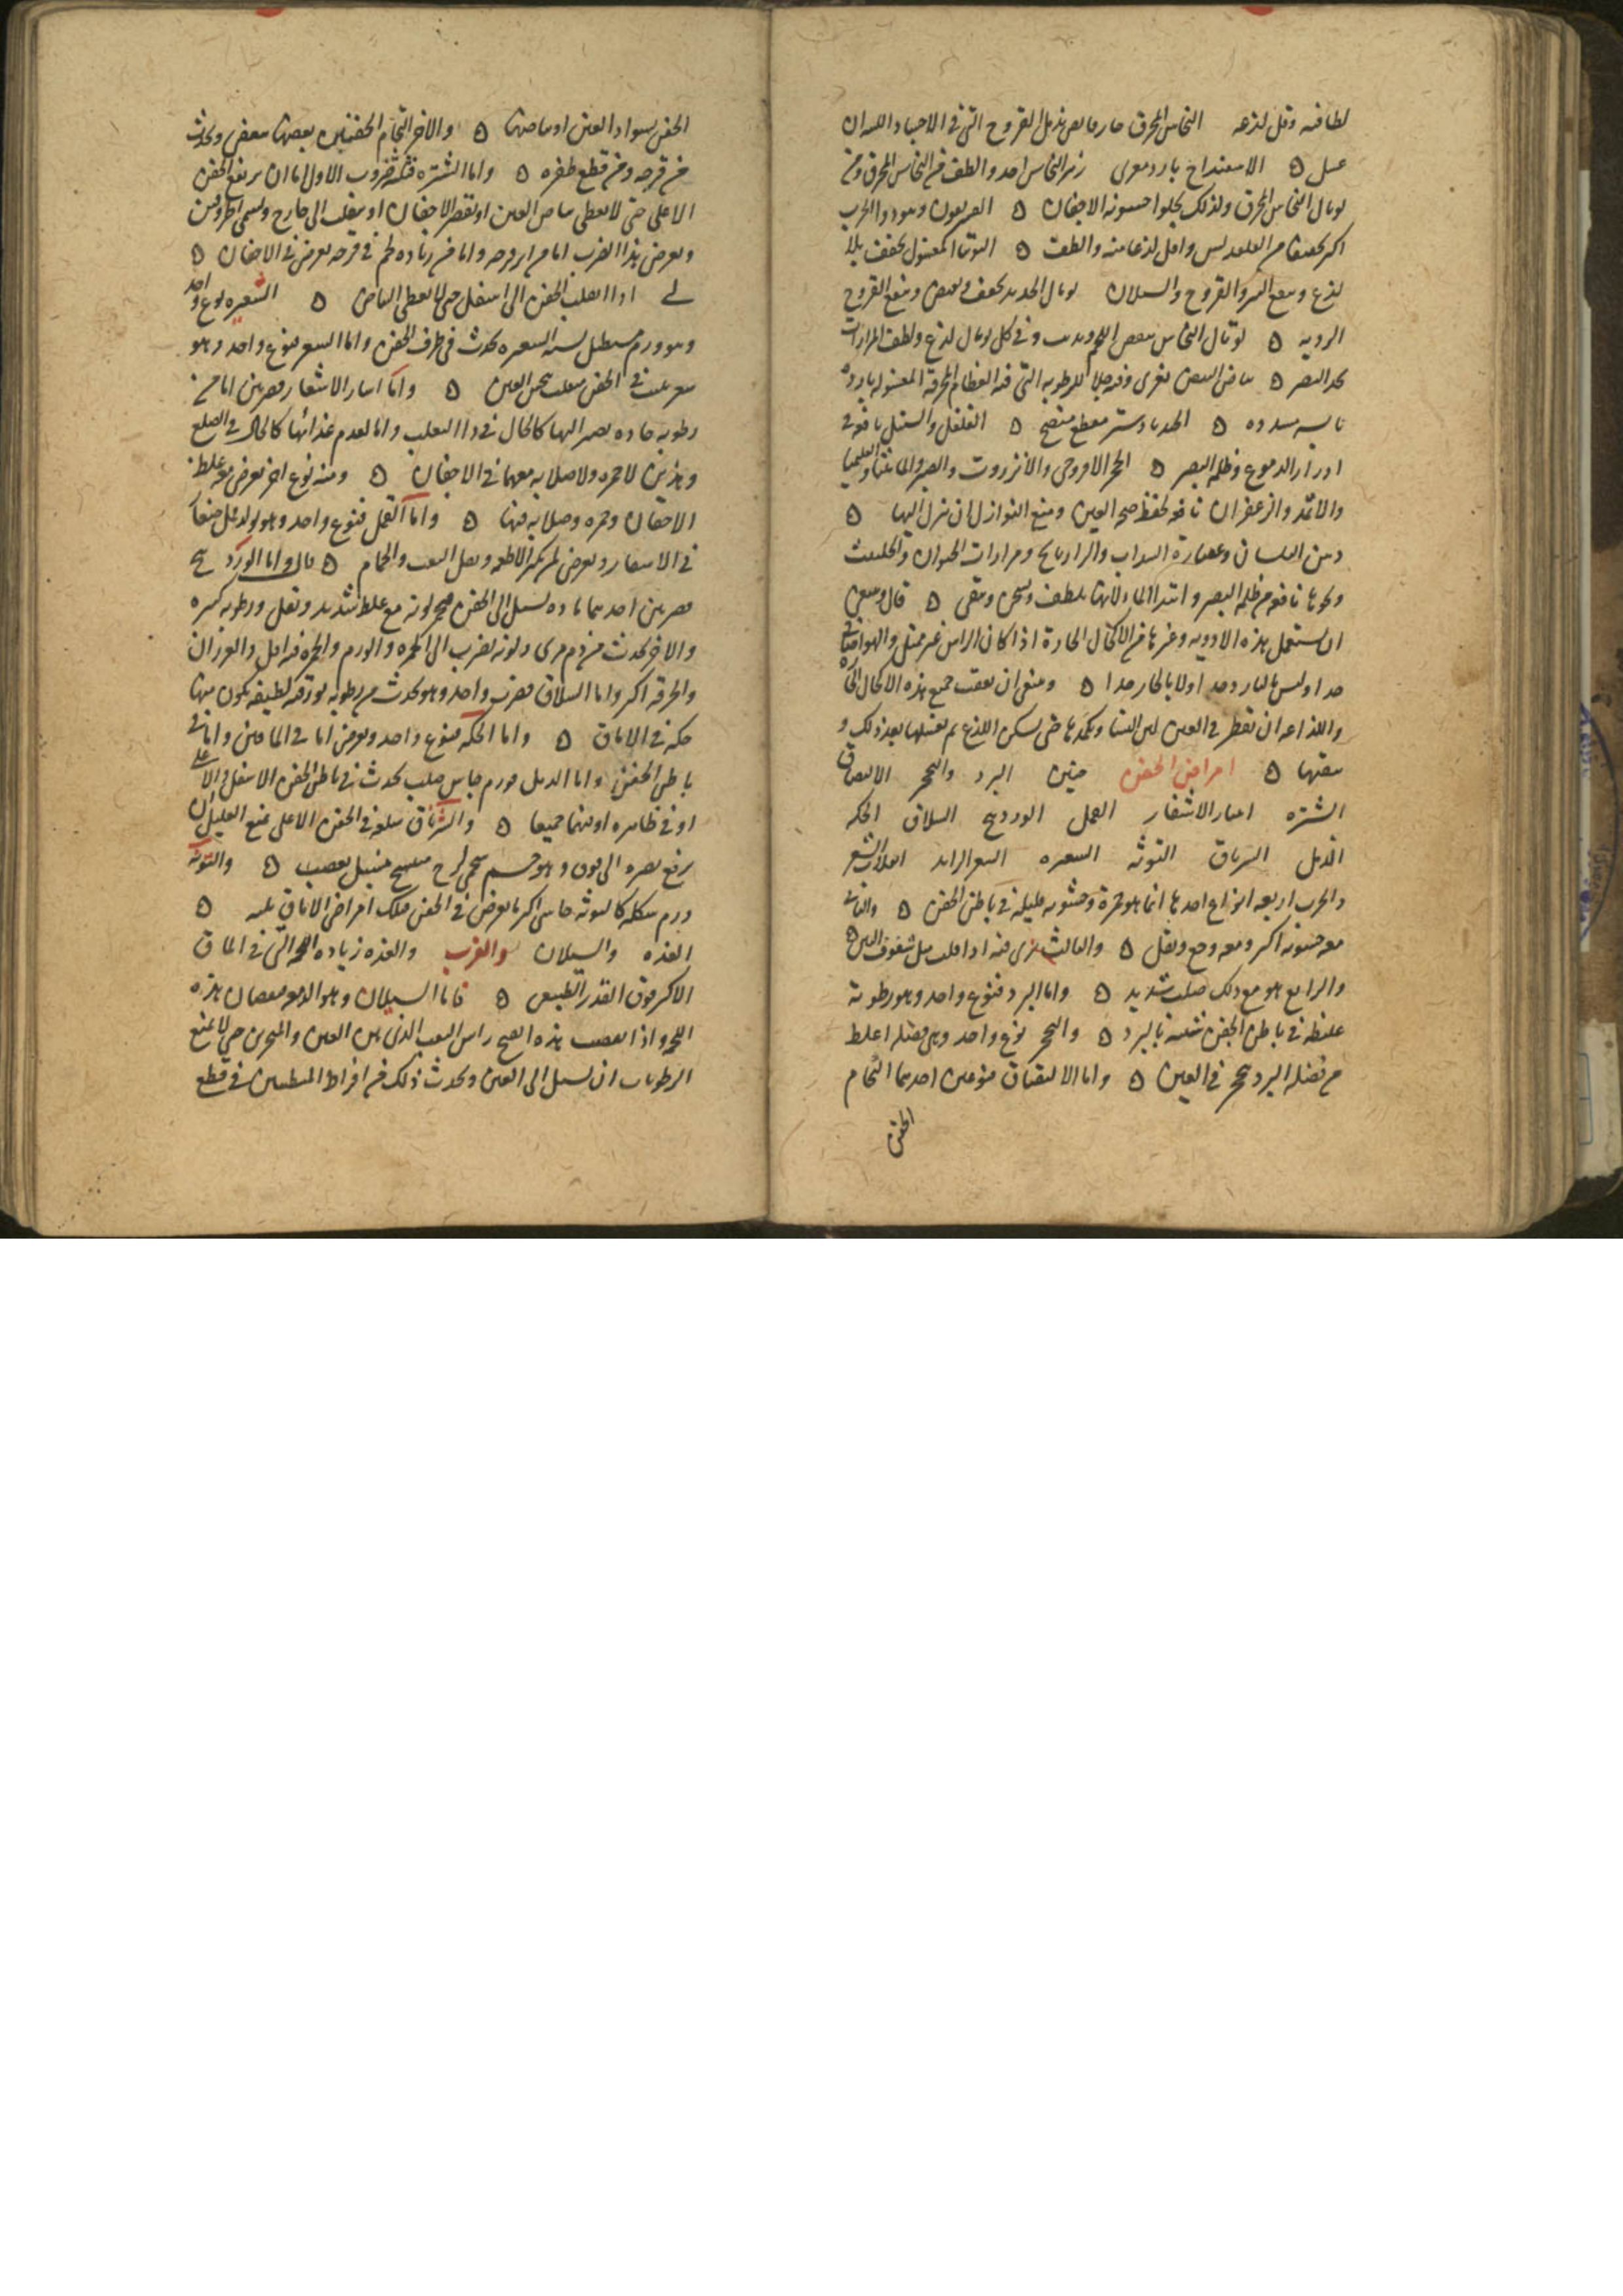 لطافته وقل لذعه النحاس المحرق حار قابض يدمل القروح التى فى الاجساد اللدان
عسل ه الاسفنداج بارد مغرى زهر النحاس احد والطف من النحاس المحرق ومن
توبال النحاس المحرق ولذلك يجلوا خشونه الاجفان ه
اكثر تجفيفا من القلقديس واقل لذعا منه والطف ه التوتيا المغسول يجفف بلا
لذع ويمنع القروح والسيلان توبال الحديد يجفف ويقبض ويمنع القروح
الرديه ه توبال النحاس ينقص اللحم ويذيب وفى كل توبال لذع ولطف المرارات
تحد البصر ه بياض البيض مغرى وفيه جلا للرطوبه التى فيه العظام المحرقة المغسوله بارده
يابسه مسدده ه الجندبادستر مقطع منضج ه الفلفل والسنبل نافع فى
ادرار الدموع وظلمه البصر ه الحجر الافروجى والانزروت والصبر والماميثا والقليميا
والاثمد والزعفران نافعه لحفظ صحه العين ومنع النوازل ان تنزل اليها ه
دهن البلسان وعصارة السداب والرازيانج ومرارات الحيوان والحلتيت
ونحوها نافع من ظلمه البصر وابتدا الماء لانها تلطف وتسخن وتنقى ه قال وينبغى
ان يستعمل هذه الادويه وغيرها من الاكحال الحارة اذا كان الراس غير ممتلى والهوا صافيا
جدا وليس بالبارد جدا ولا بالحار جدا ه وينبغى ان يعقب جميع هذه الاكحال الحاده
واللذاعه ان تقطر فى العين لبن النسا وتكمدها حتى يسكن اللذع ثم تغسلها بعد ذلك و
تنقيها ه امراض الجفن البرد والتحجر الالتصاق
الشتره انتثار الاشفار القمل الوردينج السلاق الحكه
الدمل الشرناق التوثه الشعيره الشعر الزايد انقلاب الشعر
والجرب اربعه انواع احدها انما هو حمرة وخشونه قليله فى باطن الجفن ه والثانى
معه خشونه اكثر ومعه وجع وثقل ه والثالث يرى فيه اذا قلب مثل شقوق التين ه
والرابع هو مع ذلك صلب شديد ه واما البرد فنوع واحد وهو رطوبة
غليظه فى باطن الجفن شبيه بالبرد ه والتحجر نوع واحد وهى فضله اغلظ
من فضله البرد تحجر فى العين ه واما الالتصاق فنوعين احدهما التحام
الجفن
الجفن بسواد العين او بياضها ه والاخر التحام الجفنين بعضها ببعض ويحدث
من قرحه ومن قطع ظفره ه واما الشتره فثلثه ضروب الاول اما ان يرتفع الجفن
الاعلى حتى لا يغطى بياض العين او لقصر الاجفان او ينقلب الى خارج
ويعرض هذا الضرب اما من اثر قرحه واما من زياده لحم فى قرحه يعرض فى الاجفان ه
لى اذا انقلب الجفن الى اسفل حتى لا يغطى البياض ه الشعيره نوع واحد
وهو ورم مستطيل يشبه الشعيره يحدث فى طرف الجفن واما الشعر فنوع واحد وهو
شعر ينبت فى الجفن منقلب ينخس العين ه واما انتثار الاشفار فضربين اما من
رطوبه حاده تصير اليها كالحال فى دا الثعلب واما لعدم غذائها كالحال فى الصلع
وهذين لا حمره ولا صلابه معهما فى الاجفان ه ومنه نوع اخر يعرض مع غلظ
الاجفان وحمره وصلابه فيها ه واما القمل فنوع واحد وهو تولد قمل صغار
فى الاشفار ويعرض لمن يكثر الاطعمه ويقل التعب والحمام ه قال واما الوردينج
ضربين احدهما ماده تسيل الى الجفن فتحمر لونه مع غلظ شديد وثقل ورطوبه كثيره
والاخر يحدث من دم مرى ولونه يضرب الى الحمره والورم والحمرة فيه اقل والغرزان
والحرقه اكثر واما السلاق فضرب واحد وهو يحدث من رطوبه بورقيه لطيفه تكون منها
حكه فى الاماق ه واما الحكه فنوع واحد ويعرض اما فى الماقين واما فى
باطن الجفن واما الدمل فورم جاس صلب يحدث فى باطن الجفن الاسفل او الاعلى
او فى ظاهره او فيهما جميعا ه والشرناق سلعه فى الجفن الاعلى تمنع العليل ان
يرفع بصره الى فوق وهو جسم شحمى لزج منتسج بعصب ه والتوثه
ورم شكله كالتوثه جاسى اكثر ما يعرض فى الجفن ه
الغده والسيلان والغرب والغده زياده اللحمه التى فى الماق
الاكبر فوق القدر الطبيعى ه فاما السيلان وهو الدمعه فنقصان هذه
اللحمه واذا نقصت هذه انفتح راس الثقب الذى بين العين والمنخرين حتى لا تمنع
الرطوبات ان تسيل الى العين ويحدث ذلك من افراط المتطببين فى قطع